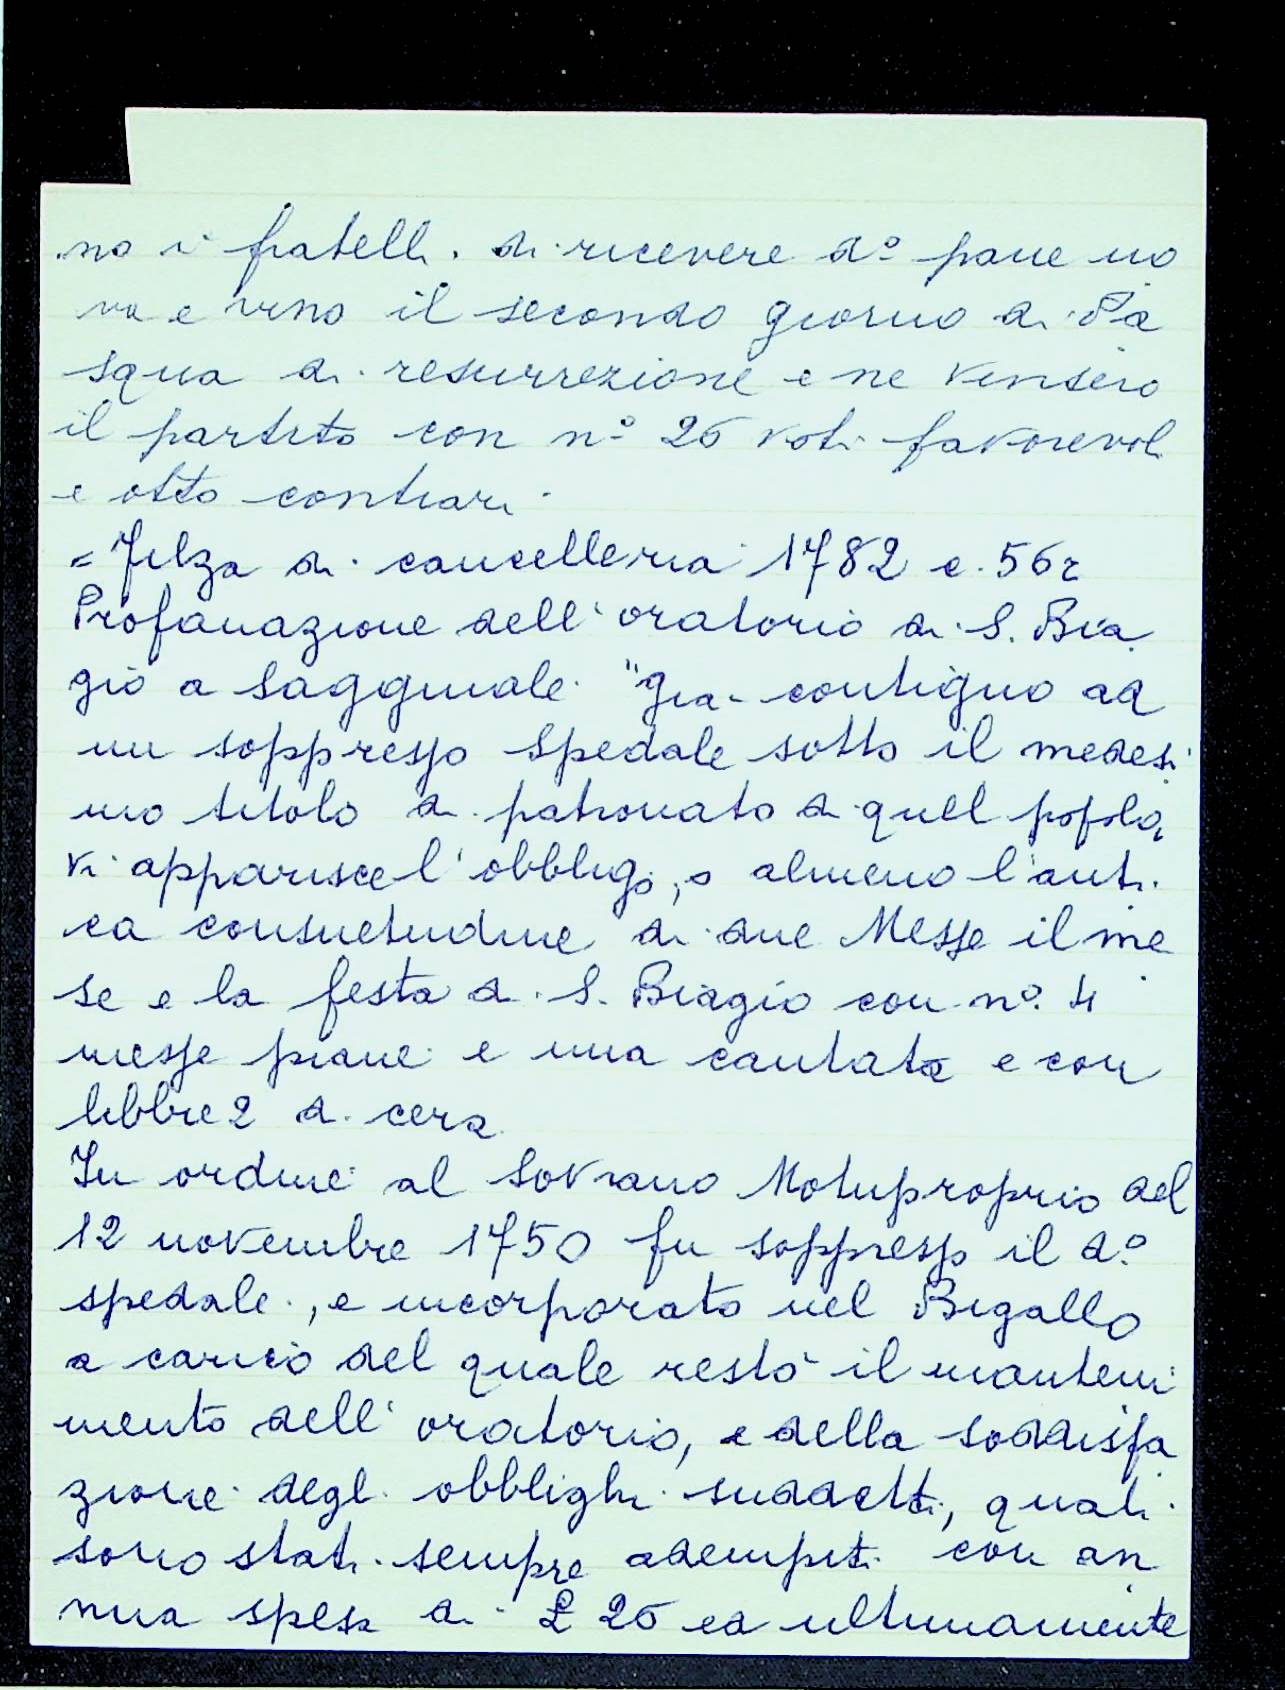 no i fratelli di ricevere d° pane uo
va e vino il secondo giorno di Pa
squa di resurrezione e ne vinsero
il partito con n° 26 voti favorevoli
e otto contrari
= Filza di cancelleria 1782 c. 56r
Profanazione dell'oratorio di S. Bia
gio a Sagginale "già contiguo ad
un soppresso Spedale sotto il medesi
mo titolo di patronato di quel popolo,
vi apparisce l'obbligo, o almeno l'anti
ca consuetudine di due Messe il me
se e la festa di S. Biagio con n° 4
messe piane e una cantata e con
libbre 2 di cera
In ordine al Sovrano Motuproprio del
12 novembre 1750 fu soppresso il d°
spedale, e incorporato nel Bigallo
a carico del quale restò il manteni
mento dell'oratorio, e della soddisfa
zione degli obblighi suddetti, quali
sono stati sempre adempiti con an
nua spesa di £ 26 ed ultimamente